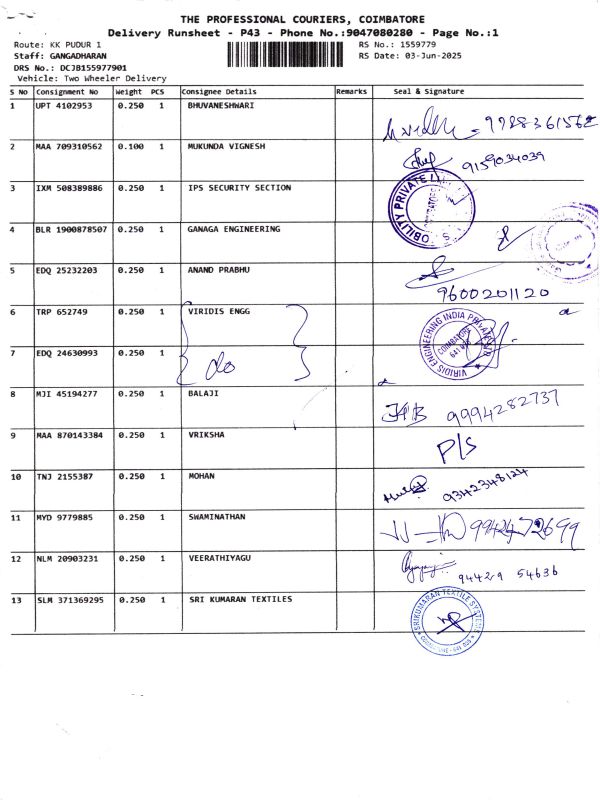 THE PROFESSIONAL COURIERS, COIMBATORE
Delivery Runsheet - P43 - Phone No.:9047080280 - Page No.:1
Route: KK PUDUR 1
RS No.: 1559779
Staff: GANGADHARAN
RS Date: 03-Jun-2025
DRS No.: DCJB155977901
Vehicle: Two Wheeler Delivery
S No Consignment No Weight PCS Consignee Details Remarks Seal & Signature
1 UPT 4102953 0.250 1 BHUVANESHWARI
2 MAA 709310562 0.100 1 MUKUNDA VIGNESH 9159034039
3 IXM 508389886 0.250 1 IPS SECURITY SECTION
OBILITY PRIVATE
4 BLR 1900878507 0.250 1 GANAGA ENGINEERING
5 EDQ 25232203 0.250 1 ANAND PRABHU 9600201120
6 TRP 652749 0.250 1 VIRIDIS ENGG
VIRIDIS ENGINEERING INDIA PRIVATE
COIMBATORE
7 EDQ 24630993 0.250 1 do
8 MJI 45194277 0.250 1 BALAJI 9994282737
9 MAA 870143384 0.250 1 VRIKSHA P/S
10 TNJ 2155387 0.250 1 MOHAN 9342348124
11 MYD 9779885 0.250 1 SWAMINATHAN
12 NLM 20903231 0.250 1 VEERATHIYAGU 94429 54636
13 SLM 371369295 0.250 1 SRI KUMARAN TEXTILES
SRIKUMARAN TEXTILE SYSTEMS